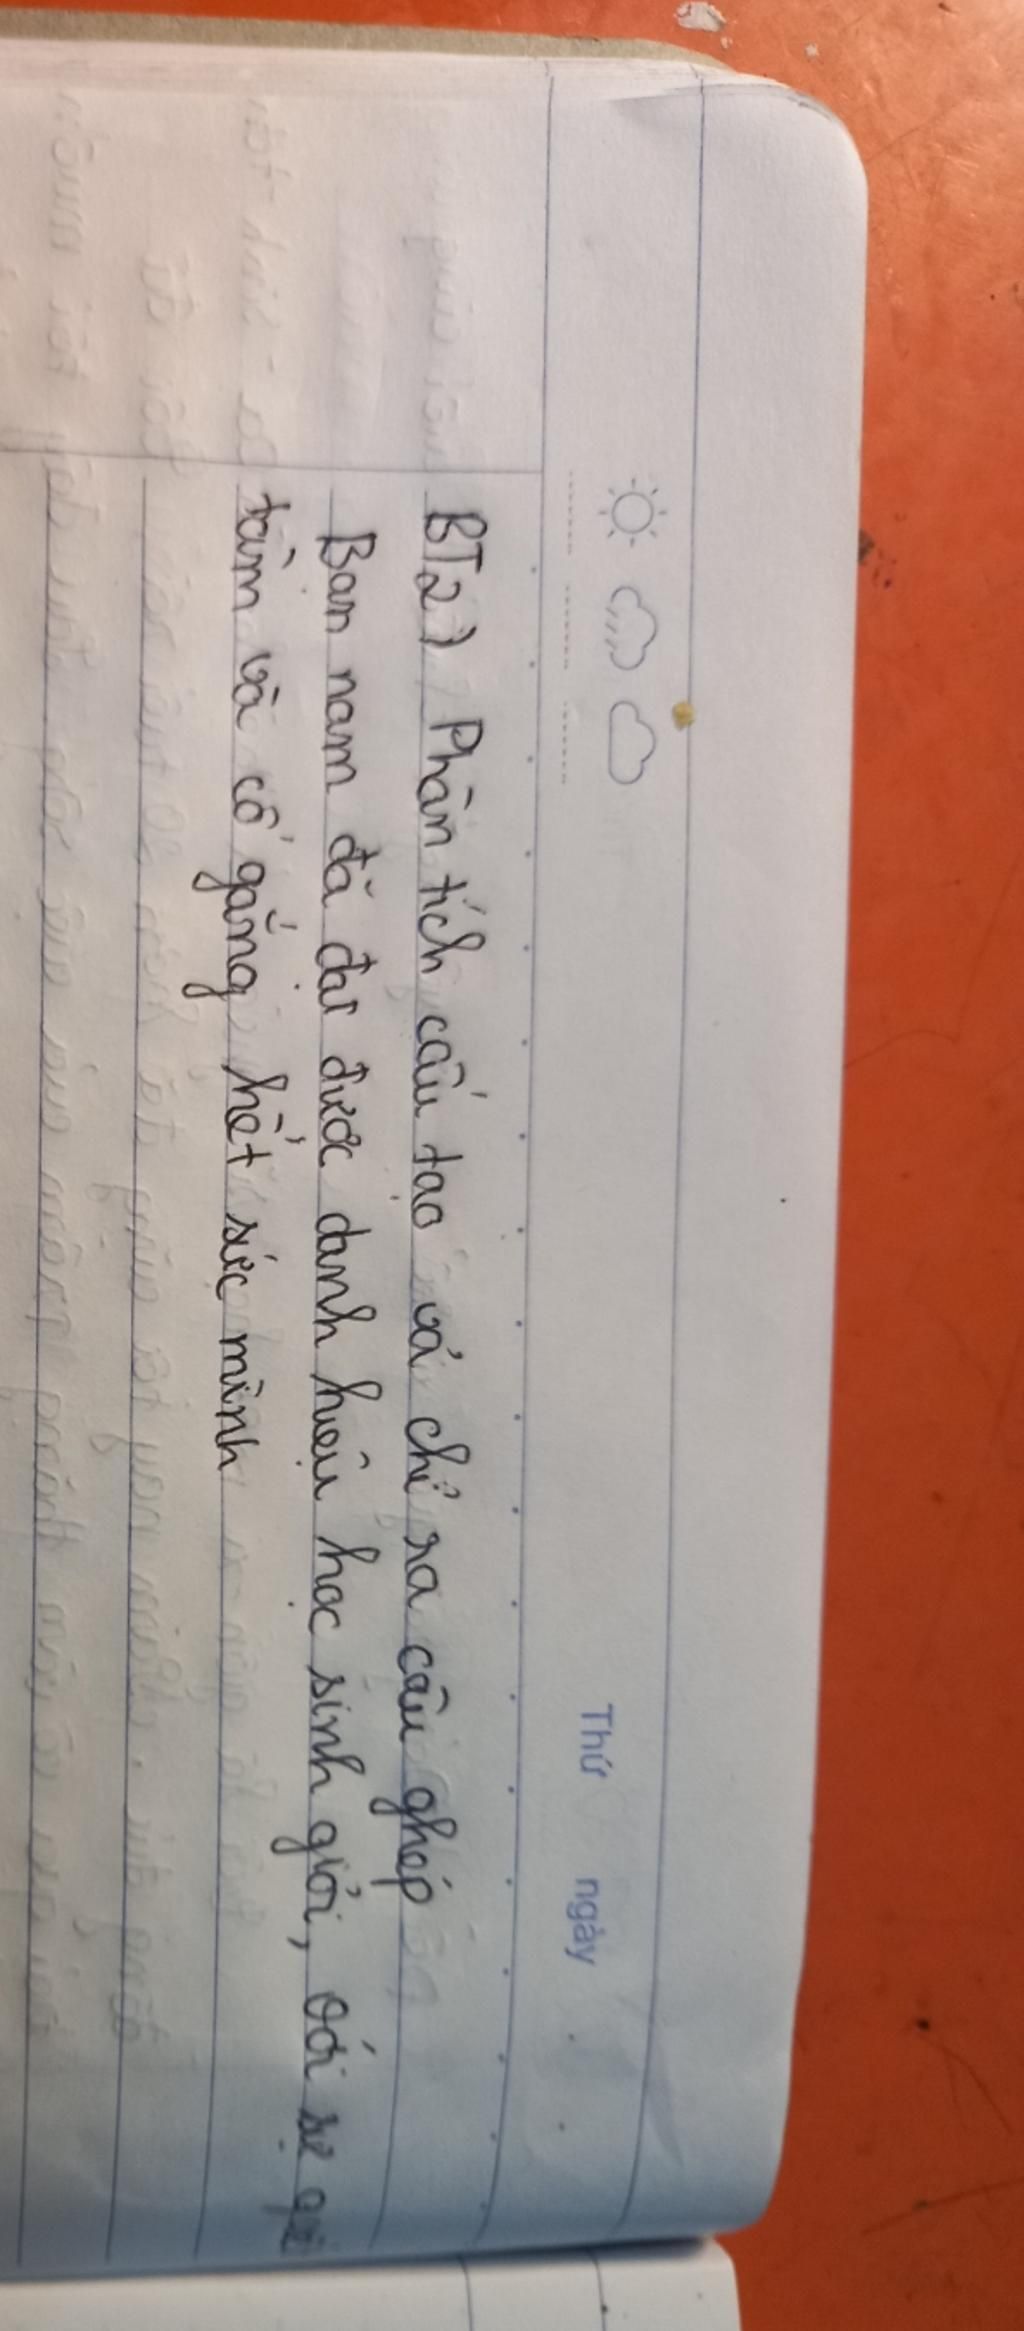 Thứ ngày
BT2) Phân tích cấu tạo và chỉ ra câu ghép
Bạn nam đã đạt được danh hiệu học sinh giỏi, với sự
tâm và cố gắng hết sức mình